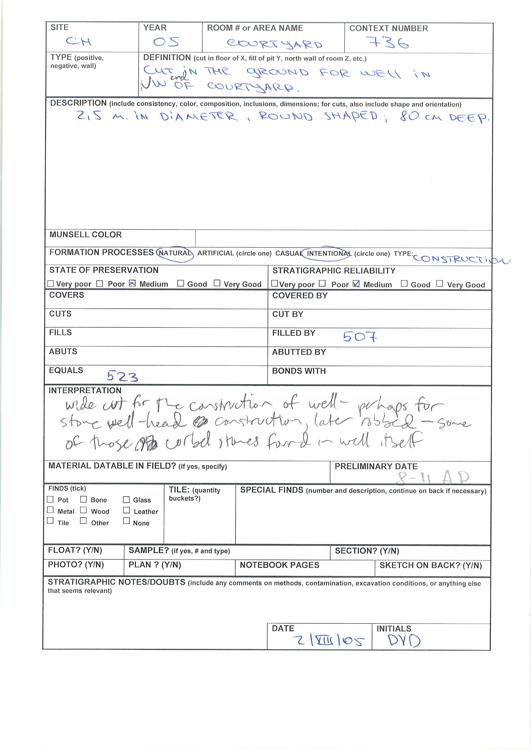 SITE
CH
YEAR
05
ROOM # or AREA NAME
COURTYARD
CONTEXT NUMBER
736
TYPE (positive, negative, wall)
DEFINITION (cut in floor of X, fill of pit Y, north wall of room Z, etc.)
CUT IN THE GROUND FOR WELL IN
NW end OF COURTYARD.
DESCRIPTION (include consistency, color, composition, inclusions, dimensions; for cuts, also include shape and orientation)
2,5 M. IN DIAMETER, ROUND SHAPED; 80 CM DEEP.
MUNSELL COLOR
FORMATION PROCESSES NATURAL ARTIFICIAL (circle one) CASUAL INTENTIONAL (circle one) TYPE: CONSTRUCTION
STATE OF PRESERVATION
☐ Very poor ☐ Poor ☒ Medium ☐ Good ☐ Very Good
STRATIGRAPHIC RELIABILITY
☐ Very poor ☐ Poor ☑ Medium ☐ Good ☐ Very Good
COVERS
COVERED BY
CUTS
CUT BY
FILLS
FILLED BY 507
ABUTS
ABUTTED BY
EQUALS 523
BONDS WITH
INTERPRETATION
wide cut for the construction of well – perhaps for
stone well-head construction, later robbed – some
of those corbel stones found in well itself
MATERIAL DATABLE IN FIELD? (if yes, specify)
PRELIMINARY DATE
8-11 AD
FINDS (tick)
☐ Pot ☐ Bone ☐ Glass
☐ Metal ☐ Wood ☐ Leather
☐ Tile ☐ Other ☐ None
TILE: (quantity buckets?)
SPECIAL FINDS (number and description, continue on back if necessary)
FLOAT? (Y/N)
SAMPLE? (if yes, # and type)
SECTION? (Y/N)
PHOTO? (Y/N)
PLAN ? (Y/N)
NOTEBOOK PAGES
SKETCH ON BACK? (Y/N)
STRATIGRAPHIC NOTES/DOUBTS (include any comments on methods, contamination, excavation conditions, or anything else
that seems relevant)
DATE
2/VIII/05
INITIALS
DVD